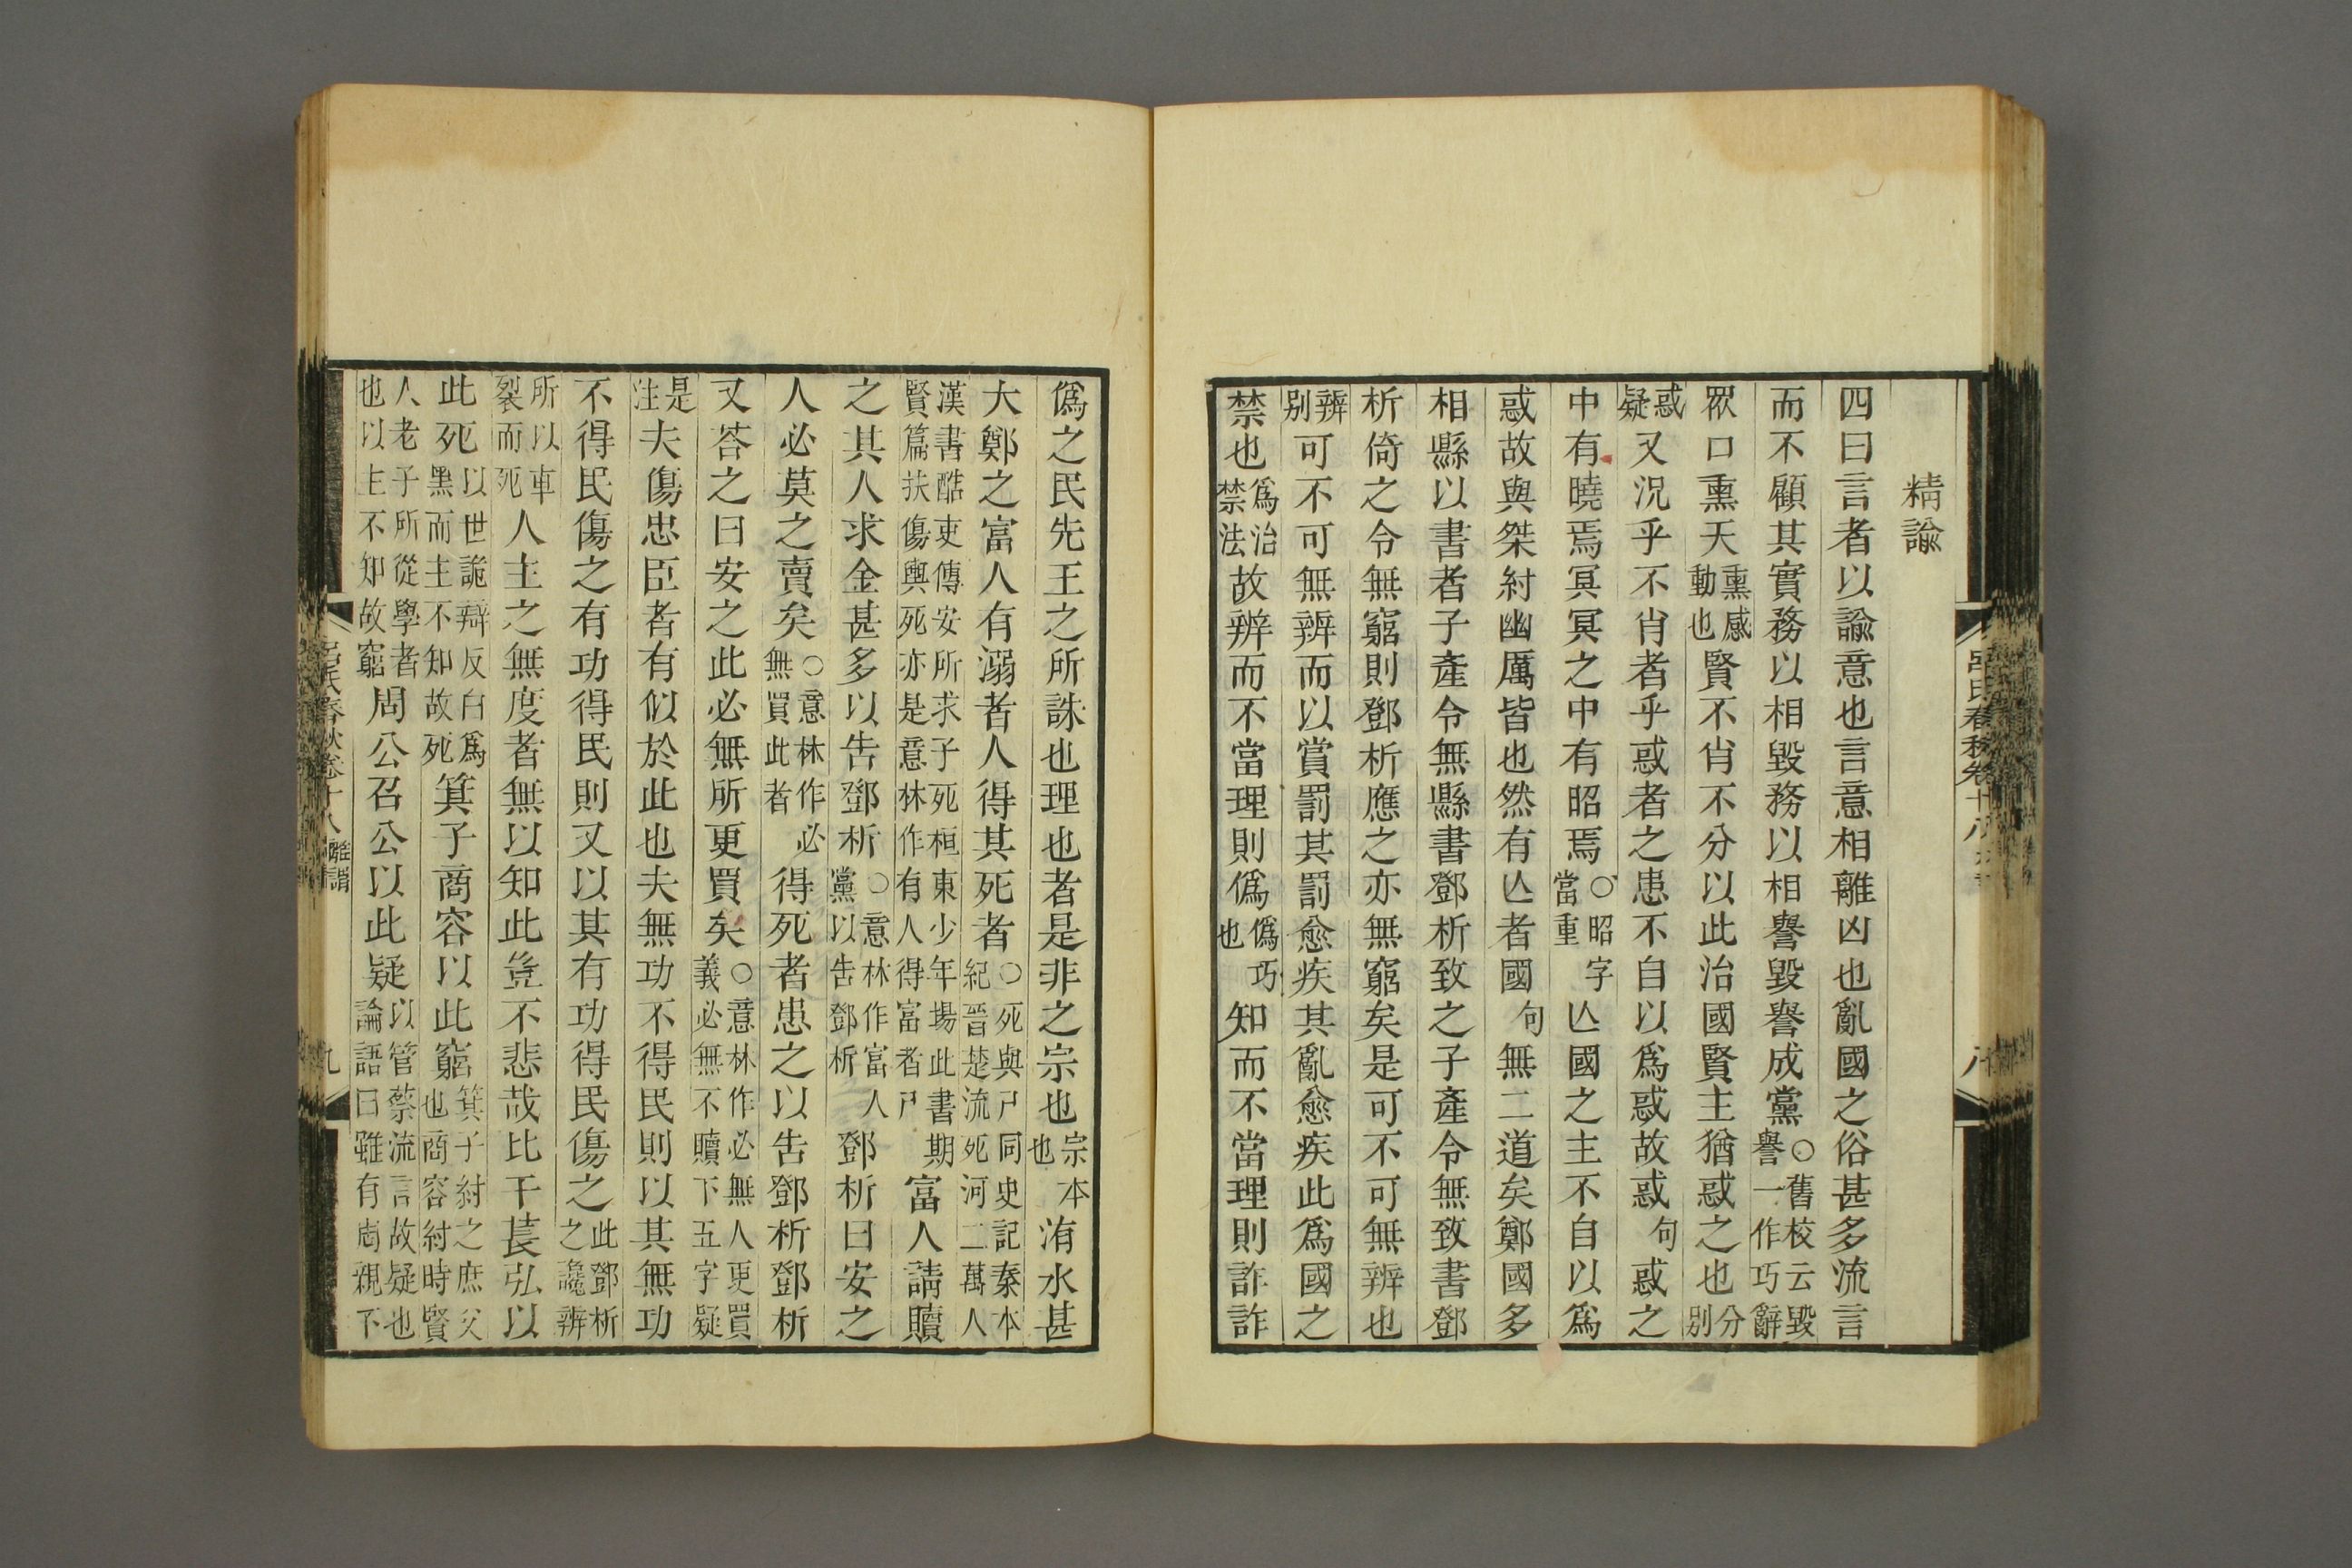 精諭
四曰言者以諭意也言意相離凶也亂國之俗甚多流言
而不顧其實務以相毀務以相譽毀譽成黨○舊校云毀譽一作巧辭
眾口熏天熏感動也賢不肖不分以此治國賢主猶惑之也分別
惑疑又況乎不肖者乎惑者之患不自以為惑故惑句惑之
中有曉焉冥冥之中有昭焉○昭字當重亾國之主不自以為
惑故與桀紂幽厲皆也然有亾者國句無二道矣鄭國多
相縣以書者子產令無縣書鄧析致之子產令無致書鄧
析倚之令無窮則鄧析應之亦無窮矣是可不可無辨也
辨別可不可無辨而以賞罰其罰愈疾其亂愈疾此為國之
禁也為治禁法故辨而不當理則偽偽巧也知而不當理則詐詐
偽之民先王之所誅也理也者是非之宗也宗本也洧水甚
大鄭之富人有溺者人得其死者○死與尸同史記秦本紀晉楚流死河二萬人
漢書酷吏傳安所求子死桓東少年場此書期賢篇扶傷輿死亦是意林作有人得富者尸富人請贖
之其人求金甚多以告鄧析○意林作富人黨以告鄧析鄧析曰安之
人必莫之賣矣○意林作必無買此者得死者患之以告鄧析鄧析
又荅之曰安之此必無所更買矣○意林作必無人更買義必無不贖下五字疑
是注夫傷忠臣者有似於此也夫無功不得民則以其無功
不得民傷之有功得民則又以其有功得民傷之此鄧析之讒辨
所以車裂而死人主之無度者無以知此豈不悲哉比干萇弘以
此死以世詭辯反白為黑而主不知故死箕子商容以此窮箕子紂之庶父也商容紂時賢
人老子所從學者也以主不知故窮周公召公以此疑以管蔡流言故疑也論語曰雖有周親不
呂氏春秋卷十八
八
呂氏春秋卷十八 離謂
九